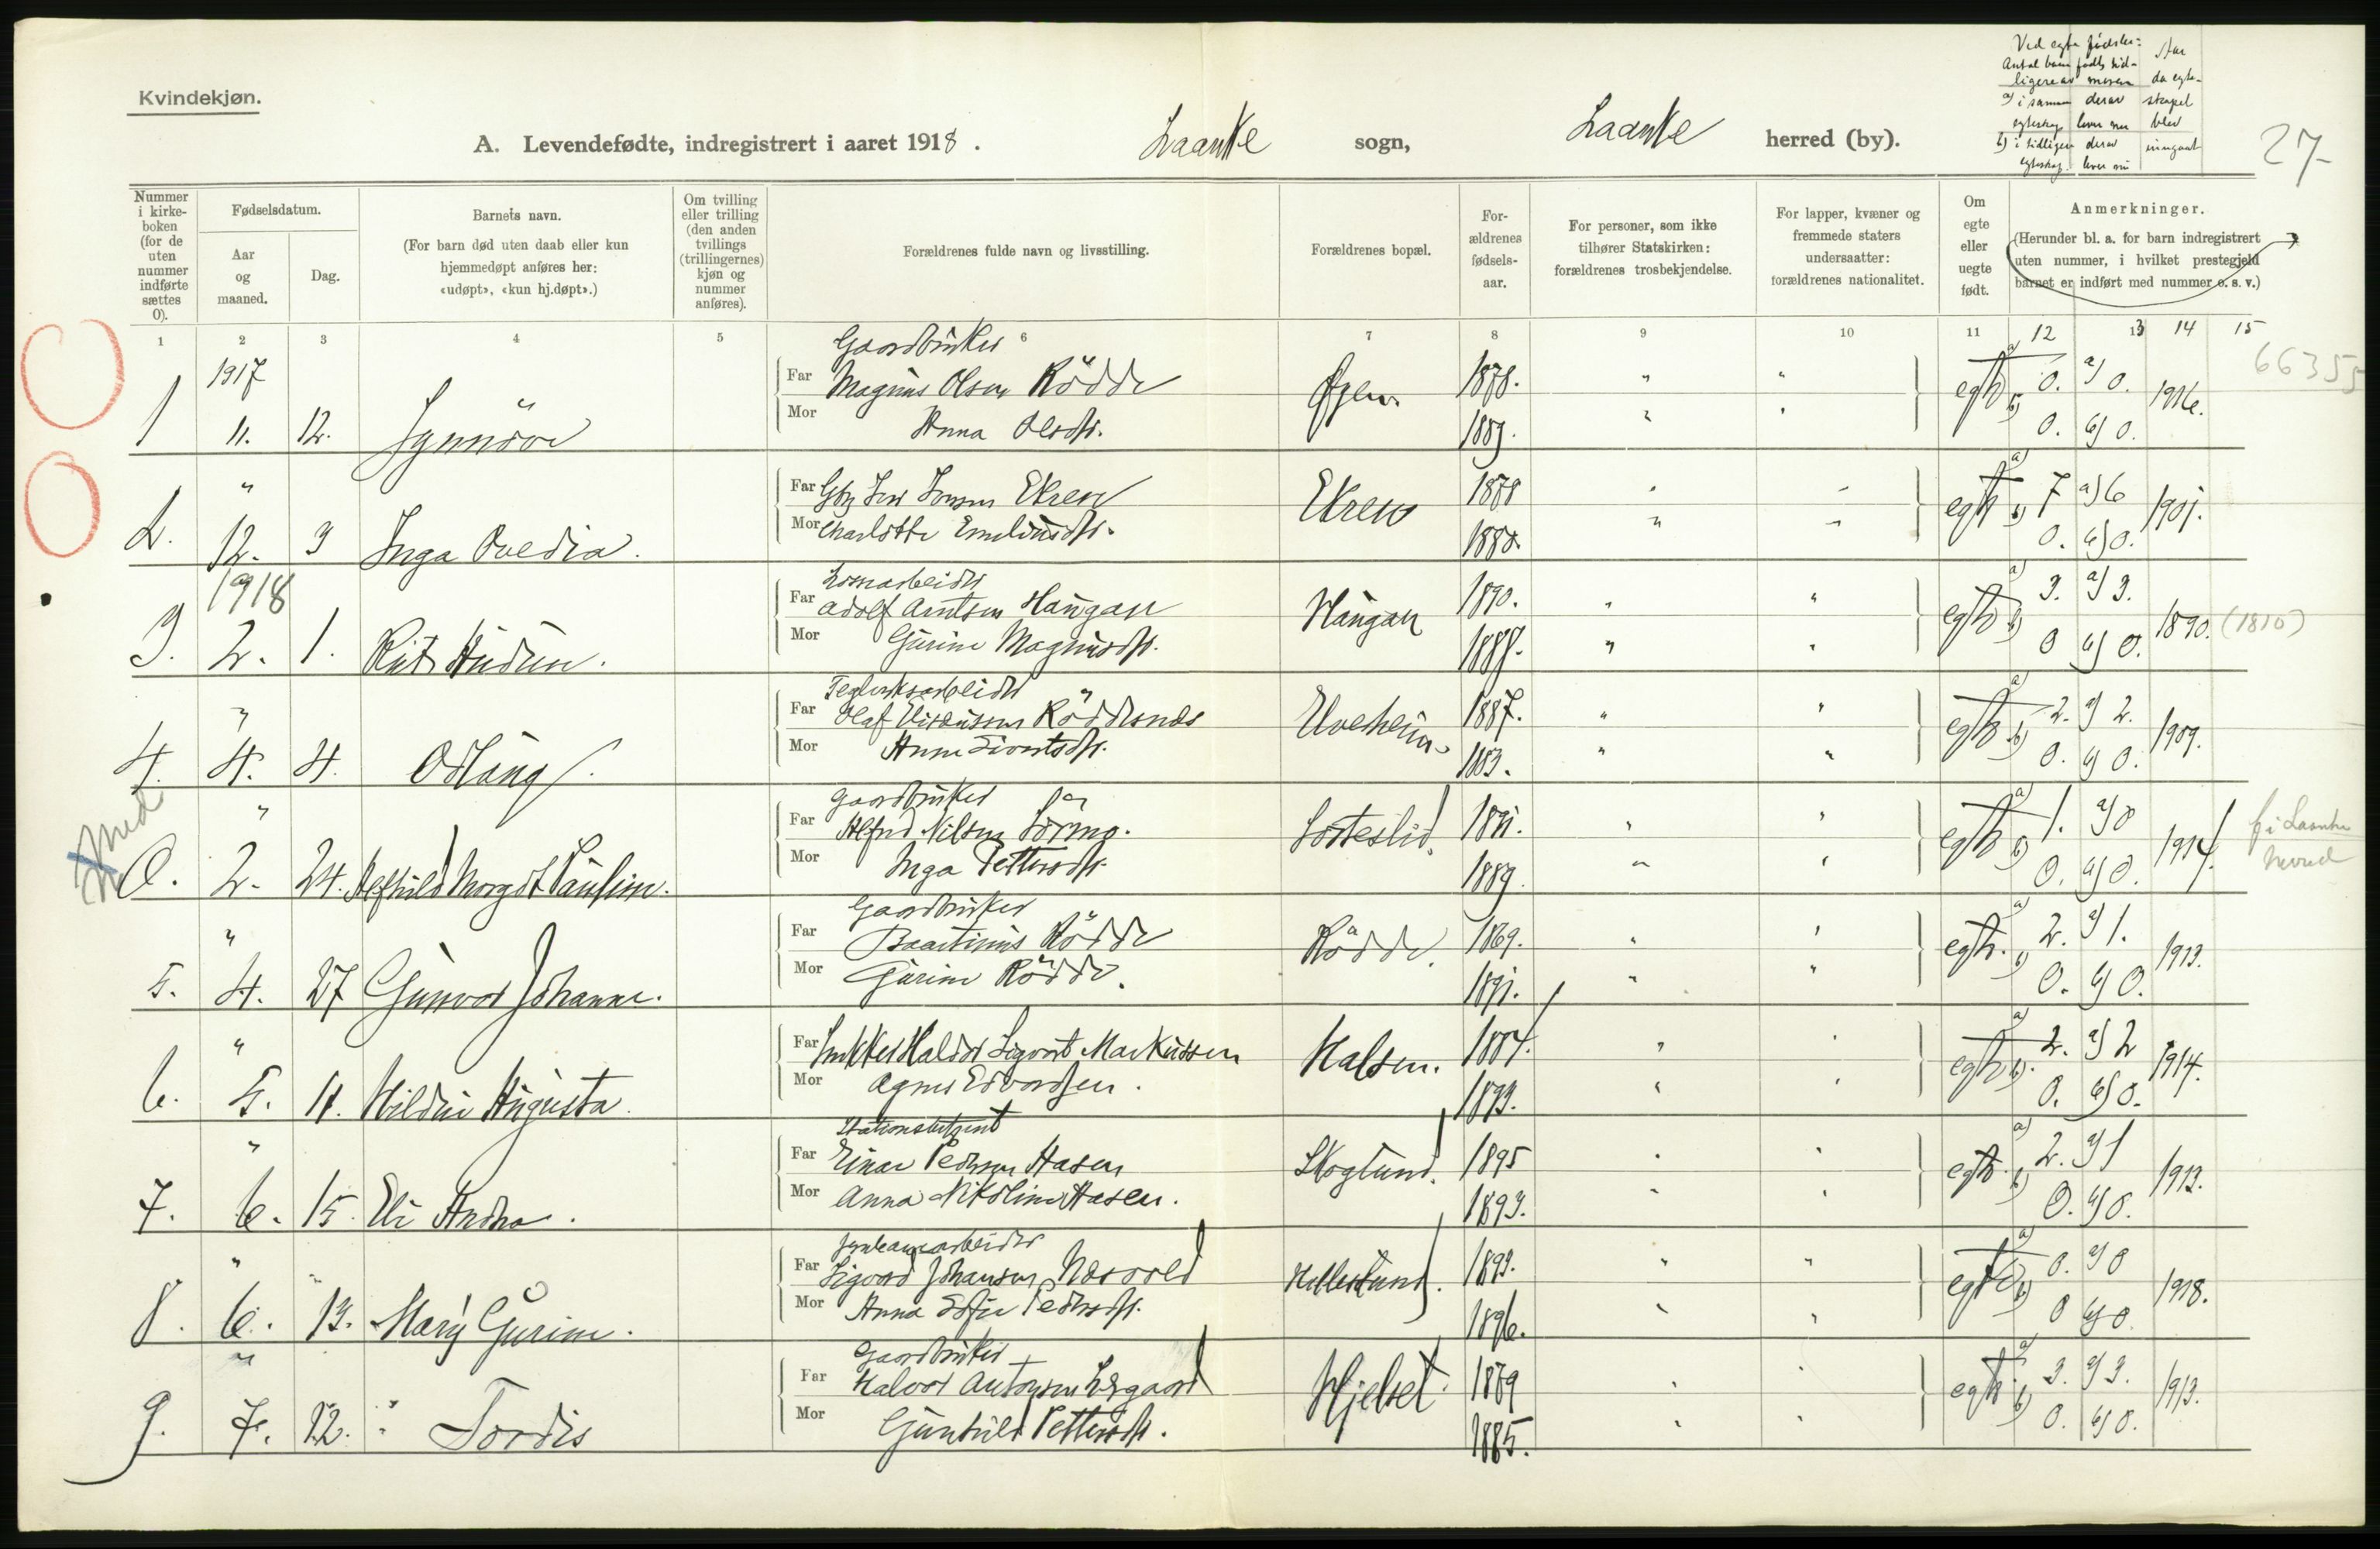 Kvindekjøn.
A. Levendefødte, indregistrert i aaret 1918.
Laanke sogn, Laanke herred (by).
Ved egte fødsler:
Antal barn født tid-
ligere av moren
a) i samme egteskap
derav lever nu
b) i tidligere egteskap.
derav lever nu
Aar da egte-
skapet blev
inngaat
27
Nummer i kirke-boken (for de uten nummer indførte sættes 0).
Fødselsdatum.
Aar og maaned.
Dag.
Barnets navn.
(For barn død uten daab eller kun hjemmedøpt anføres her: «udøpt», «kun hj.døpt».)
Om tvilling eller trilling (den anden tvillings (trillingernes) kjøn og nummer anføres).
Forældrenes fulde navn og livsstilling.
Forældrenes bopæl.
For-ældrenes fødsels-aar.
For personer, som ikke tilhører Statskirken: forældrenes trosbekjendelse.
For lapper, kvæner og fremmede staters undersaatter: forældrenes nationalitet.
Om egte eller uegte født.
Anmerkninger.
(Herunder bl. a. for barn indregistrert uten nummer, i hvilket prestegjeld barnet er indført med nummer o. s. v.)
1 2 3 4 5 6 7 8 9 10 11 12 13 14 15
66355
1917
Gaardbruker
1 11. 12. Synnöve
Far Magnus Olsen Rödde 1878. " "
Mor Anna Olsdtr. 1889. " "
egte a) 0. a) 0. b) 0. b) 0. 1916.
"
2. 12. 3 Inga Ovedia.
Far Ekren 1878 " "
Mor Charlotte 1880. " "
Ekren
egte a) 7 a) 6 b) 0. b) 0. 1901.
1918
3. 2. 1.
Far Adolf Arntsen Haugan 1890. " "
Mor Gurine Magnusdtr. 1888. " "
Haugan
egte a) 3. a) 3. b) 0 b) 0. 1890. (1810)
"
Teglverksarbeider
4. 4. 4. Odlaug.
Far Olaf Röddesnes 1887. " "
Mor Anne Sivertsdtr. 1883. " "
Elveheim.
egte a) 2. a) 2. b) 0. b) 0. 1909.
med
"
Gaardbruker
0. 2. 24. Alfhild Margot Pauline.
Far Alfred Nilsen Sörmo. 1891. " "
Mor Inga Pettersdtr. 1889. " "
egte a) 1. a) 0 b) 0. b) 0. 1914.
f. i Laanke herred
"
Gaardbruker
5. 4. 27 Gunvor Johanne.
Far Baartinus Rödde 1869. " "
Mor Gurine Rödde. 1891. " "
Rödde.
egte. a) 2. a) 1. b) 0. b) 0. 1913.
"
6. 5. 11. Hildur Augusta.
Far Haldor Sigvart Markussen 1884. " "
Mor Agnes Edvardsen. 1893. " "
Halsen.
egte a) 2. a) 2 b) 0. b) 0. 1914.
"
7. 6. 15. Eli Andrea.
Far Einar Pedersen Hasen 1895 " "
Mor Anna Nikoline Hasen. 1893. " "
Skoglund.
egte. a) 2. a) 1 b) 0. b) 0. 1913.
"
Jernbanearbeider
8. 6. 13. Mary Gurine.
Far Sigvard Johansen Næsvold 1893. " "
Mor Anna Sofie Pedersdtr. 1896. " "
egte a) 0. a) 0 b) 0 b) 0. 1918.
"
Gaardbruker
9. 7. 12. Tordis
Far Halvor Antonsen 1879 " "
Mor Gunhild Pettersdtr. 1885. " "
Hjelset.
egte a) 3. a) 3. b) 0. b) 0. 1913.